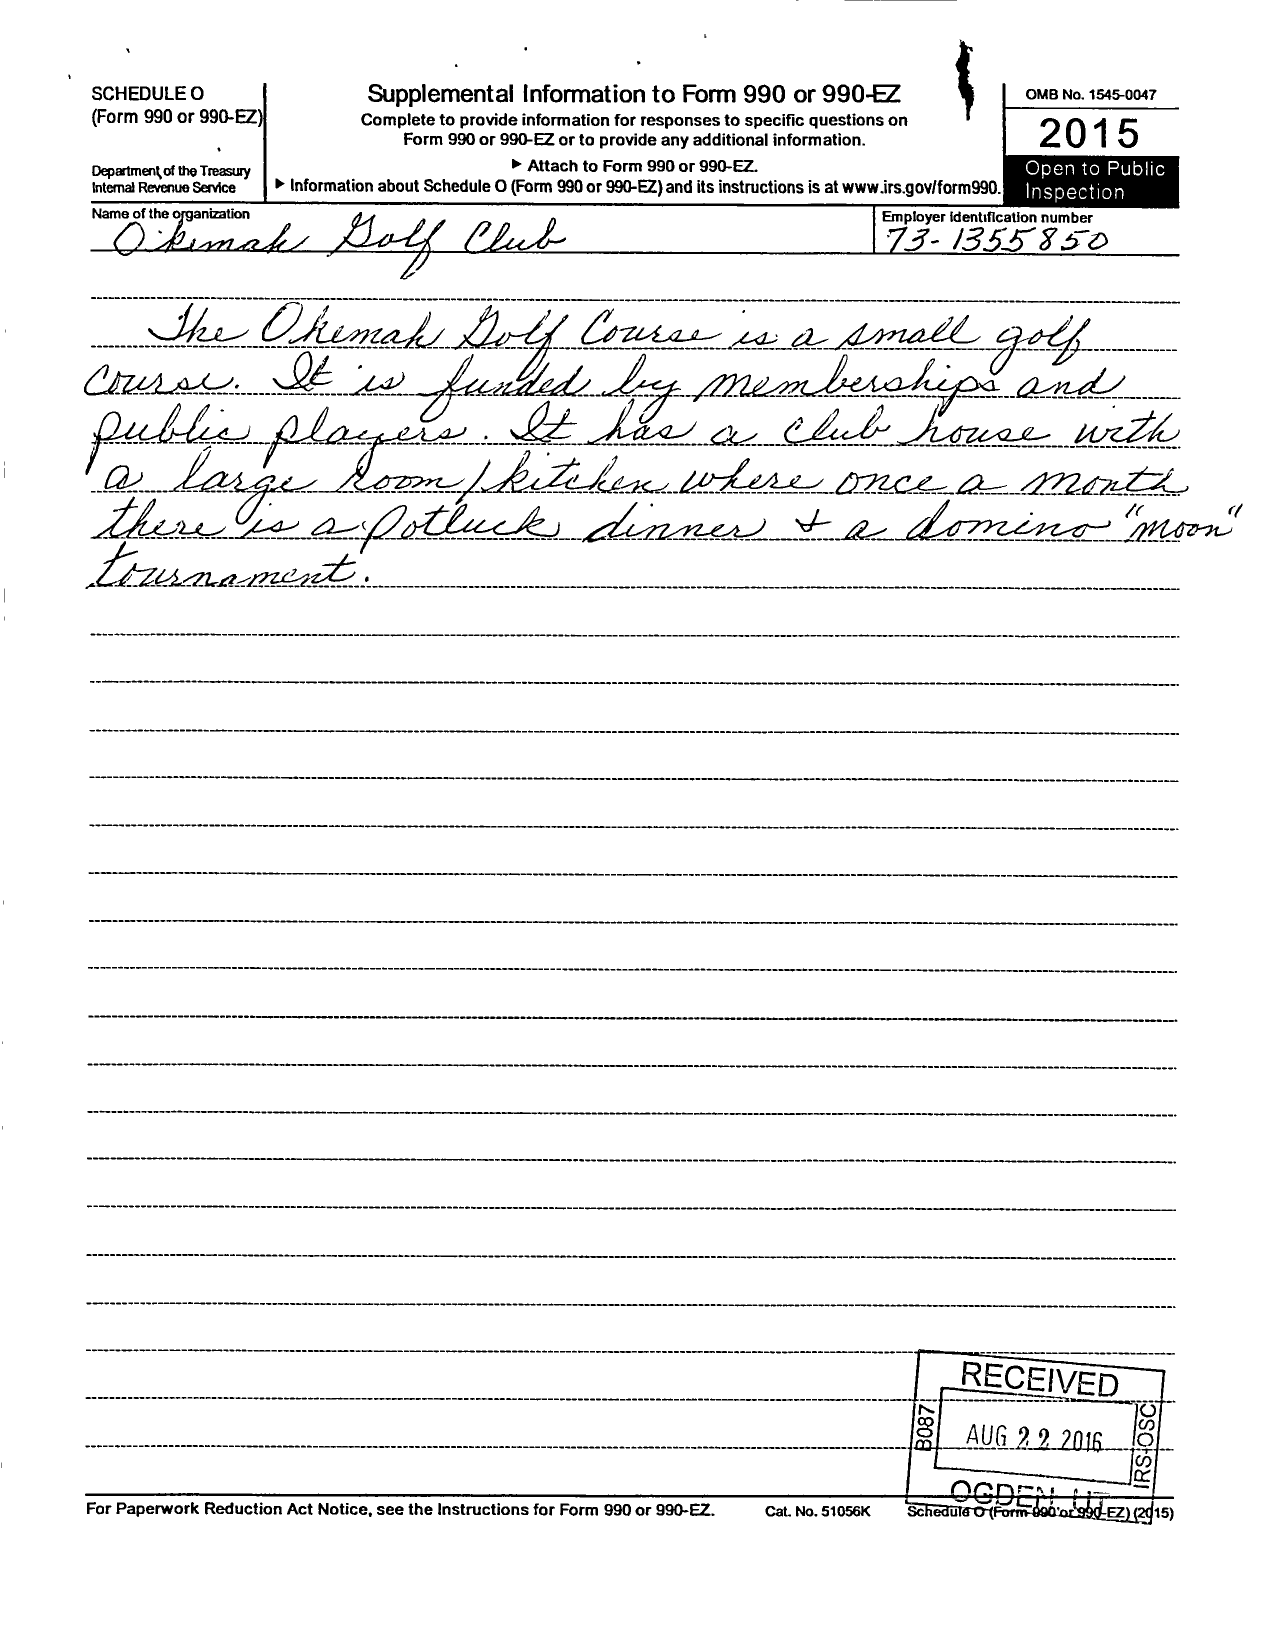 SCHEDULE O
(Form 990 or 990-EZ)
Department of the Treasury
Internal Revenue Service
Supplemental Information to Form 990 or 990-EZ
Complete to provide information for responses to specific questions on
Form 990 or 990-EZ or to provide any additional information.
► Attach to Form 990 or 990-EZ.
► Information about Schedule O (Form 990 or 990-EZ) and its instructions is at www.irs.gov/form990.
OMB No. 1545-0047
2015
Open to Public
Inspection
Name of the organization
Okemah Golf Club
Employer identification number
73-1355850
The Okemah Golf Course is a small golf
course. It is funded by memberships and
public players. It has a club house with
a large room/kitchen where once a month
there is a potluck dinner & a domino "moon"
tournament.
RECEIVED
B087
AUG 22 2016
IRS-OSC
OGDEN, UT
For Paperwork Reduction Act Notice, see the Instructions for Form 990 or 990-EZ.
Cat. No. 51056K
Schedule O (Form 990 or 990-EZ) (2015)